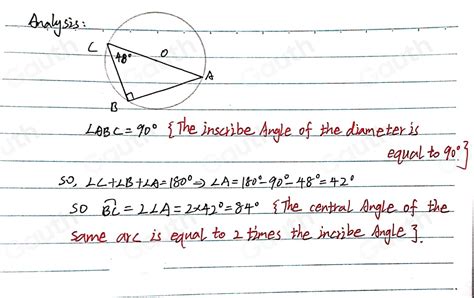 Analysis:
C
48°
O
A
B
∠ABC = 90° {The inscribe Angle of the diameter is
equal to 90°}
so, ∠C+∠B+∠A=180° ⇒ ∠A=180°-90°-48°=42°
so B͡C = 2∠A = 2×42° = 84° {The central Angle of the
same arc is equal to 2 times the incribe Angle}.